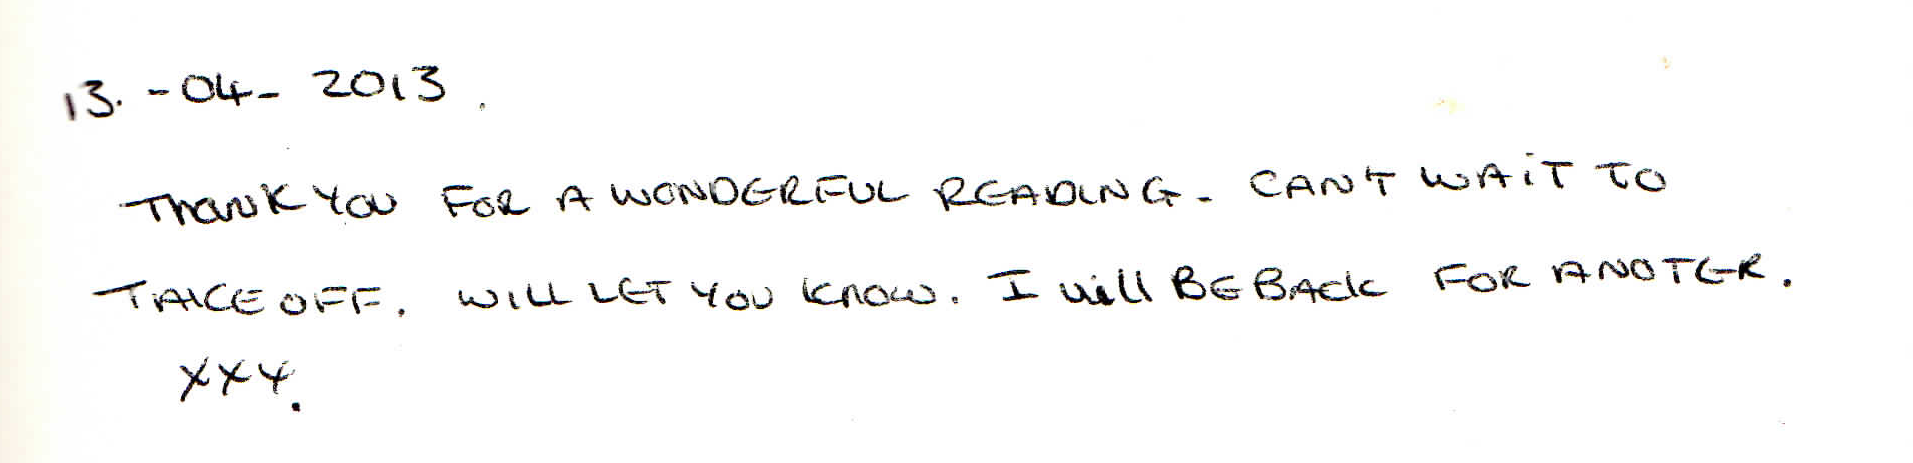 13. - 04 - 2013.
THANK YOU FOR A WONDERFUL READING. CAN'T WAIT TO
TAKE OFF. WILL LET YOU KNOW. I will BE BACK FOR ANOTER.
XXX.